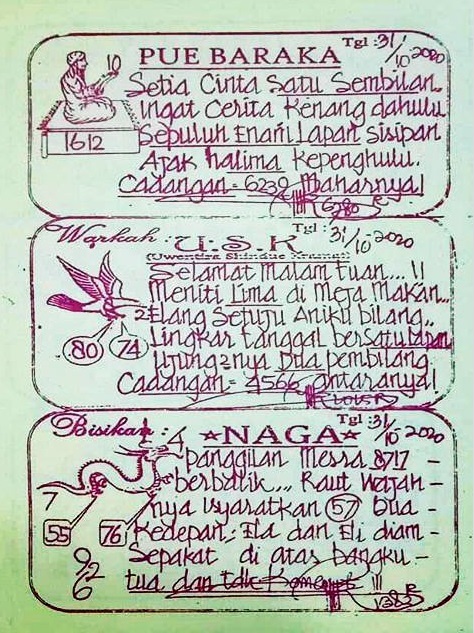 PUE BARAKA Tgl : 31/10 2020
10
Setia Cinta Satu Sembilan.
Ingat Cerita Kenang dahulu
Sepuluh Enam Lapan Sisipan
1612
Ajak halima Kepenghulu.
Cadangan = 6239 Maharnya!
Warkah : U.S.K Tgl : 31/10 - 2020
Selamat Malam Tuan... !!
Meniti Lima di Meja Makan..
2 Elang Setuju Aniku bilang..
80 74
Lingkar tanggal bersatu lapan
Ujung2nya Dua pembilang
Cadangan = 4566 Antaranya!
Bisikan : 4 ★NAGA★ Tgl : 31/10 2020
panggilan Mesra 8717 -
berbalik... Raut Wajah -
7
nya isyaratkan 57 bila -
55 76
Kedepan : Ela dan Eli diam -
Sepakat di atas bangku -
9/2 6
tua dan tdk !!!